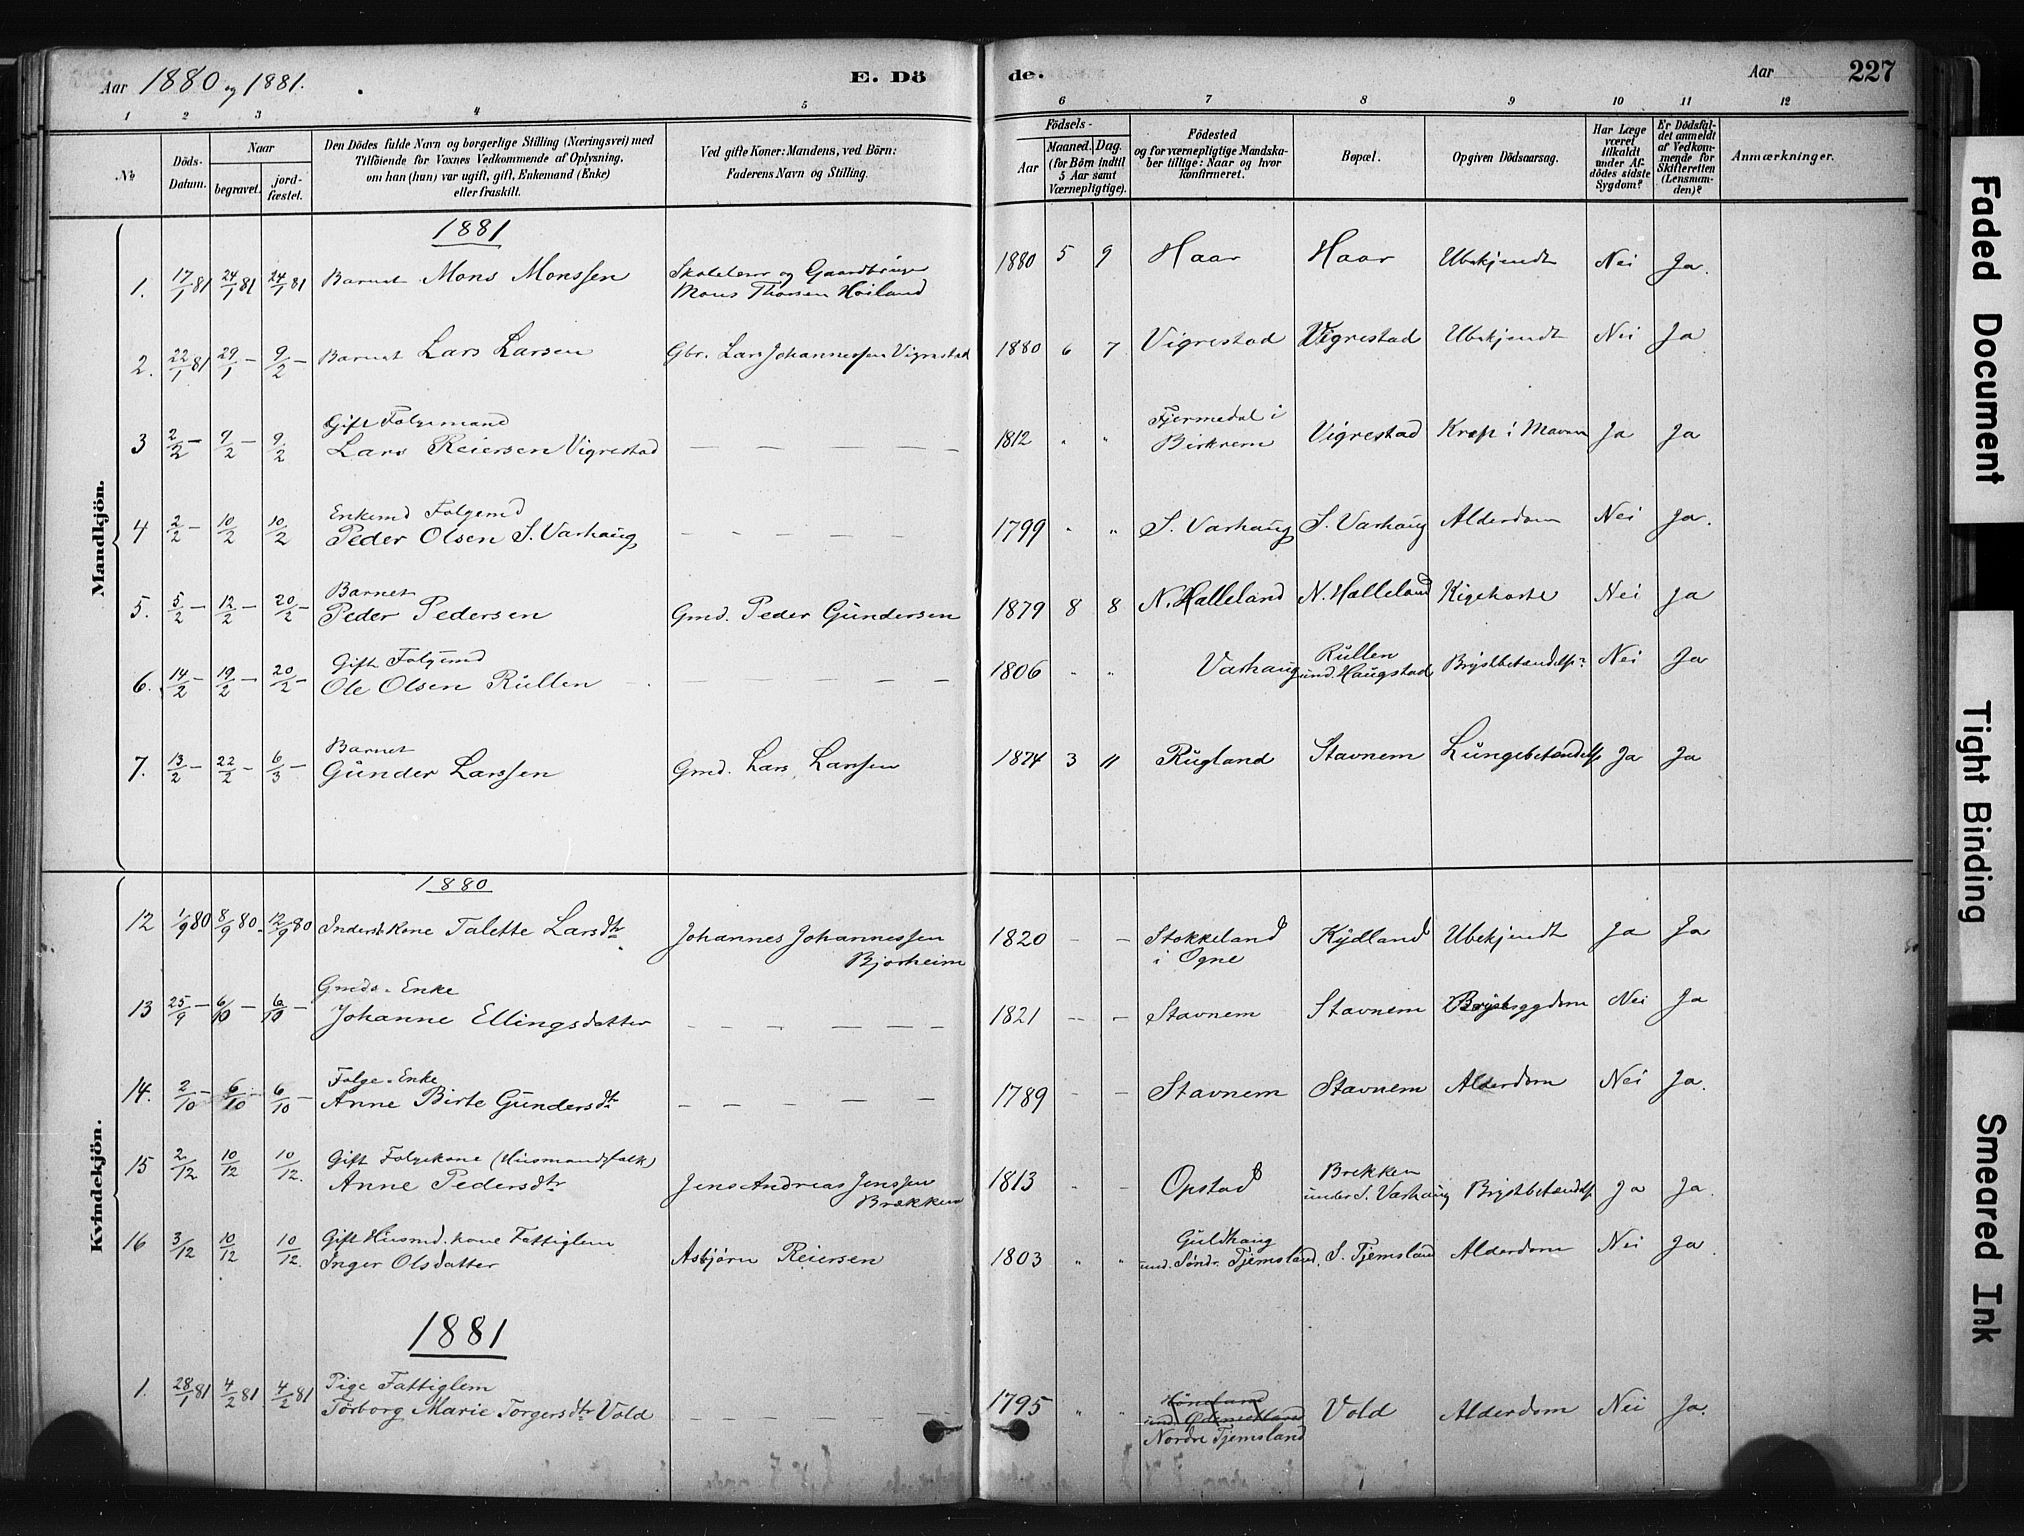 Aar 1880 og 1881.
E. Döde.
Aar 227
1 2 3 4 5 6 7 8 9 10 11 12
No
Döds-Datum.
Naar
begravet.
jordfæstet.
Den Dödes fulde Navn og borgerlige Stilling (Næringsvei) med
Tilföiende for Voxnes Vedkommende af Oplysning,
om han (hun) var ugift, gift, Enkemand (Enke)
eller fraskilt.
Ved gifte Koner: Mandens, ved Börn:
Faderens Navn og Stilling.
Födsels-
Aar
Maaned. Dag.
(for Börn indtil
5 Aar samt
Værnepligtige).
Födested
og for værnepligtige Mandskaber tillige: Naar og hvor
konfirmeret.
Bopæl.
Opgiven Dödsaarsag.
Har Læge
været
tilkaldt
under Afdödes sidste
Sygdom?
Er Dödsfaldet anmeldt
af Vedkommende for
Skifteretten
(Lensmanden)?
Anmærkninger.
Mandkjön.
1881
1. 17/1 81 24/1 81 24/1 81 Barnet Mons Monssen Skolelærer og Gaardbruger Mons Thorsen Høiland 1880 5 9 Haar Haar Ubekjendt Nei Ja.
2. 22/1 81 29/1 – 9/2 – Barnet Lars Larsen Gbr. Lars Johannessen Vigrestad 1880 6 7 Vigrestad Vigrestad Ubekjendt Nei Ja
3 2/2 – 9/2 – 9/2 Gift Folgemand
Lars Reiersen Vigrestad – – – – – 1812 " " Fjermedal i
Birkrem Vigrestad Kræft i Maven Ja Ja
4 2/2 – 10/2 10/2 Enkemd Folgemd
Peder Olsen S. Varhaug – – – – – 1799 " " S. Varhaug S. Varhaug Alderdom Nei Ja.
5. 5/2 – 12/2 – 20/2 – Barnet
Peder Pedersen Gmd. Peder Gundersen 1879 8 8 N. Hælleland N. Hælleland Kigehoste Nei Ja
6. 14/2 – 19/2 – 20/2 – Gift Folgemd
Ole Olsen Rullen – – – – – 1806 " " Varhaug Rullen
und. Haugstad Brystbetændelse Nei Ja
7. 13/2 – 22/2 – 6/3 – Barnet
Gunder Larssen Gmd. Lars Larssen 1874 3 11 Rugland Stavnem Lungebetændelse Ja Ja
Kvindekjön.
1880
12 1/9 80 8/9 80. 12/9 80 Inderst Kone Talette Larsdtr. Johannes Johannessen
Bjorheim 1820 – – Stokkeland
i Ogne Kydland Ubekjendt Ja Ja
13 25/9 – 6/10 – 6/10 – Gmds. Enke
Johanne Ellingsdatter – – – – – 1821 – – Stavnem Stavnem Brystsygdom Nei Ja
14. 2/10 – 6/10 6/10 – Folge-Enke
Anne Birte Gundersdtr – – – – – 1789 – – Stavnem Stavnem Alderdom Nei Ja.
15 2/12 10/12 10/12. Gift Folgekone (Husmandsfolk)
Anne Pedersdtr Jens Andreas Jenssen
Brækken 1813 – – Opstad Brekken
under S. Varhaug Brystbetændelse Ja Ja.
16 3/12 10/12 10/12. Gift Husmd. kone Fattiglem
Inger Olsdatter Asbjørn Reiersen 1803 " " Guldhaug
und. Søndr. Tjemsland. S. Tjemsland Alderdom Nei Ja.
1881
1. 28/1 81 4/2 81 4/2 81 Pige Fattiglem
Torborg Marie Torgersdtr Vold – – – – – 1795 " "
Nordre Tjemsland Vold Alderdom Nei Ja.
Faded Document
Tight Binding
Smeared Ink